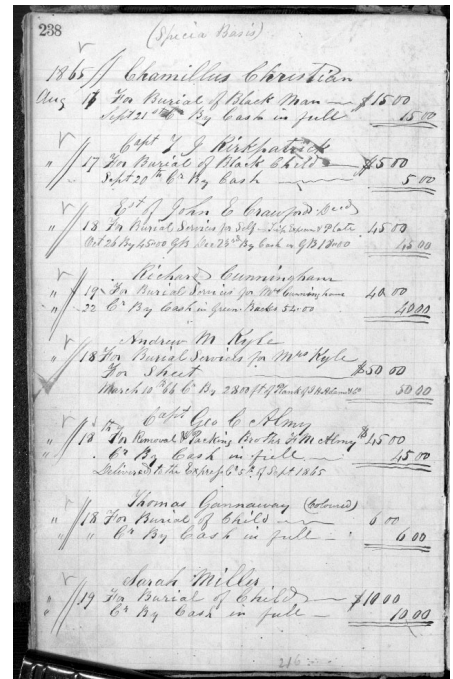 238
(Specia Basis)
1865 Chamillus Christian
Aug 17 For Burial of Black Man $15 00
Sept 21st Cr By Cash in full 15 00
Capt T J Kirkpatrick
" 17 For Burial of Black Child $5 00
Sept 20th Cr By Cash 5 00
Est of John E Crawford Decd
" 18 For Burial Services for Self Plate 45 00
Oct 26 By 45 00 GB By Cash in GB 45 00
Richard Cunningham
" 19 For Burial Services for Mrs Cunningham 40 00
" 22 Cr By Cash in Green Backs 54 00 40 00
Andrew M Kyle
" 18 For Burial Services for Mrs Kyle
For Sheet $50 00
March 10th 66 Cr By 2800 ft of Plank of 50 00
Capt Geo C Almy
" 18 For Removal & Packing Brother F McAlmy $45 00
" Cr By Cash in full 45 00
Delivered to the Express Co 5th of Sept 1865
Thomas Gannaway (Coloured)
" 18 For Burial of Child 6 00
" " Cr By Cash in full 6 00
Sarah Miller
" 19 For Burial of Child $10 00
" Cr By Cash in full 10 00
216